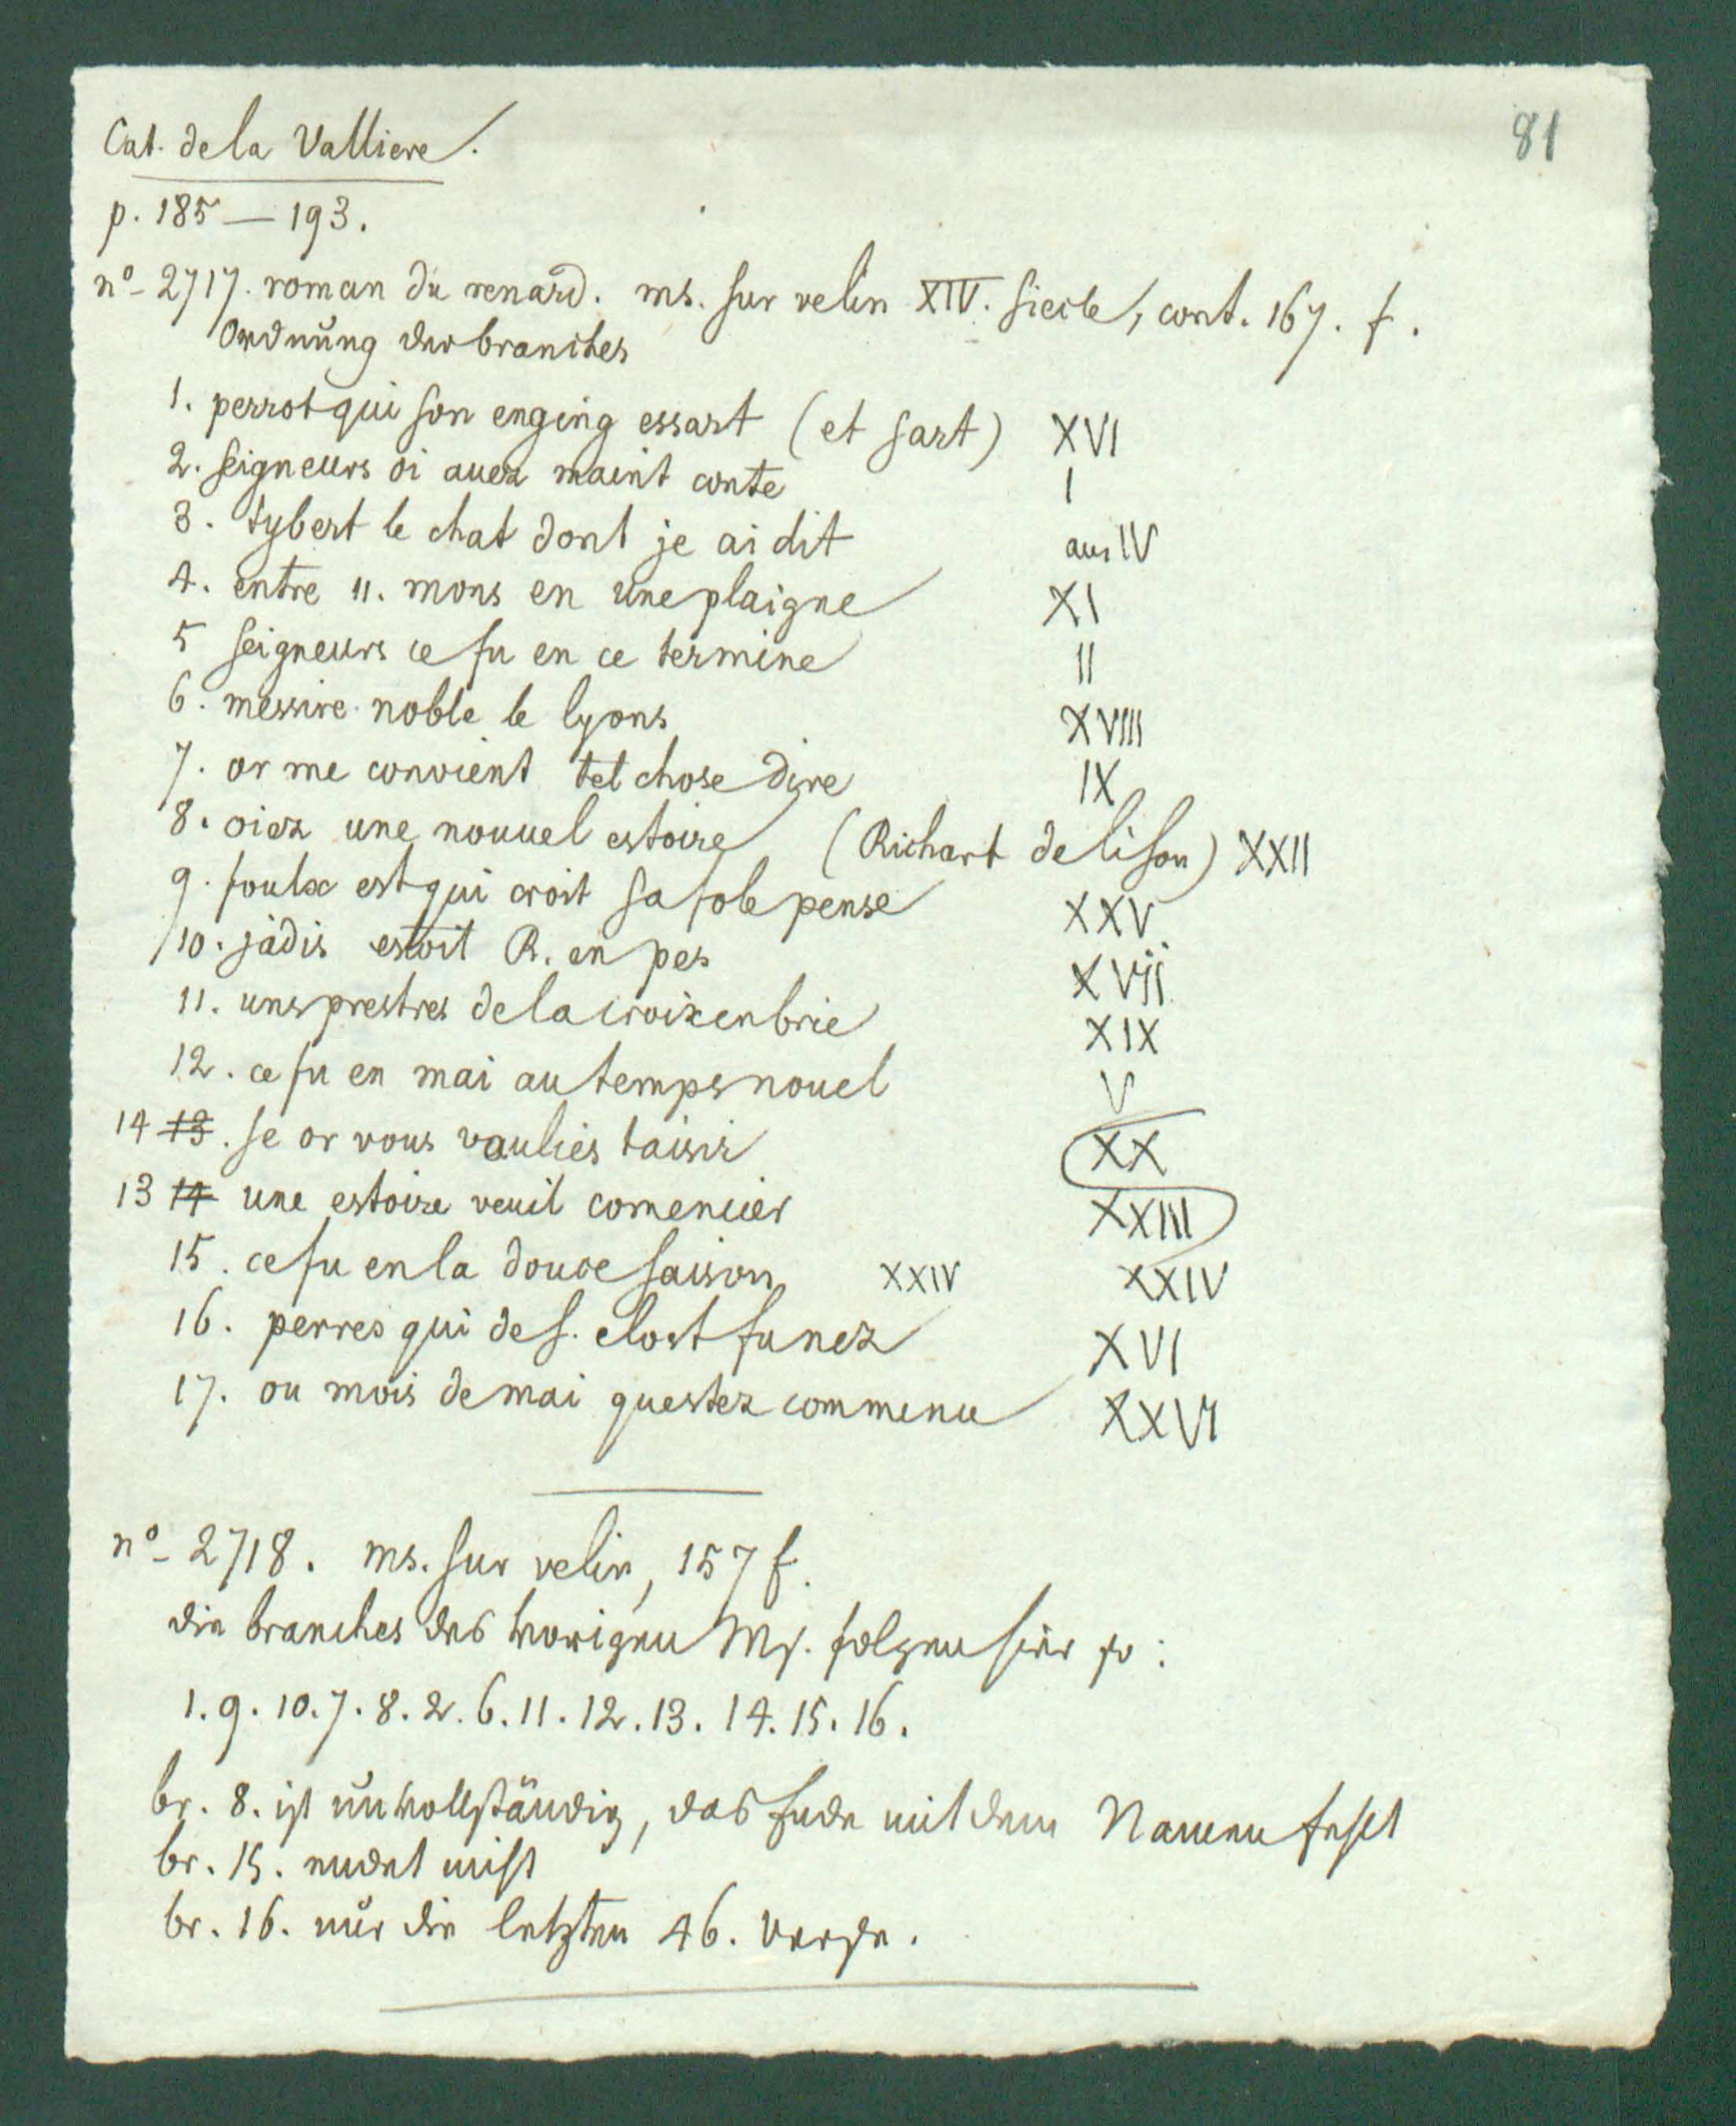 81
Cat. de la Valliere.
p. 185 — 193.
nº 2717. roman du renard. ms. sur velin XIV. siecle, cont. 167. f.
Ordnung der branches
1. perrot qui son enging essart (et sart) XVI
2. seigneurs oi auez maint conte I
3. tybert le chat dont je ai dit aus IV
4. entre 11. mons en une plaigne XI
5 seigneurs ce fu en ce termine II
6. messire noble le lyons XVIII
7. or me convient tel chose dire IX
8. oiez une nouuel estoire (Richart de lison) XXII
9. foulx est qui croit sa fole pense XXV
10. jadis estoit R. en pes XVij
11. uns prestres de la croix en brie XIX
12. ce fu en mai au temps nouel V
14 13. se or vous vaulies taisir XX
13 14 une estoire veuil comencier XXIII
15. ce fu en la douce saison XXIV XXIV
16. perres qui de s. clost fu nez XVI
17. ou mois de mai questez commence XXVI
nº 2718. ms. sur velin, 157 f.
die branches des vorigen Ms. folgen hier so:
1. 9. 10. 7. 8. 2. 6. 11. 12. 13. 14. 15. 16.
br. 8. ist unvollständig, das Ende mit dem Namen fehlt
br. 15. endet
br. 16. nur die letzten 46. Verse.